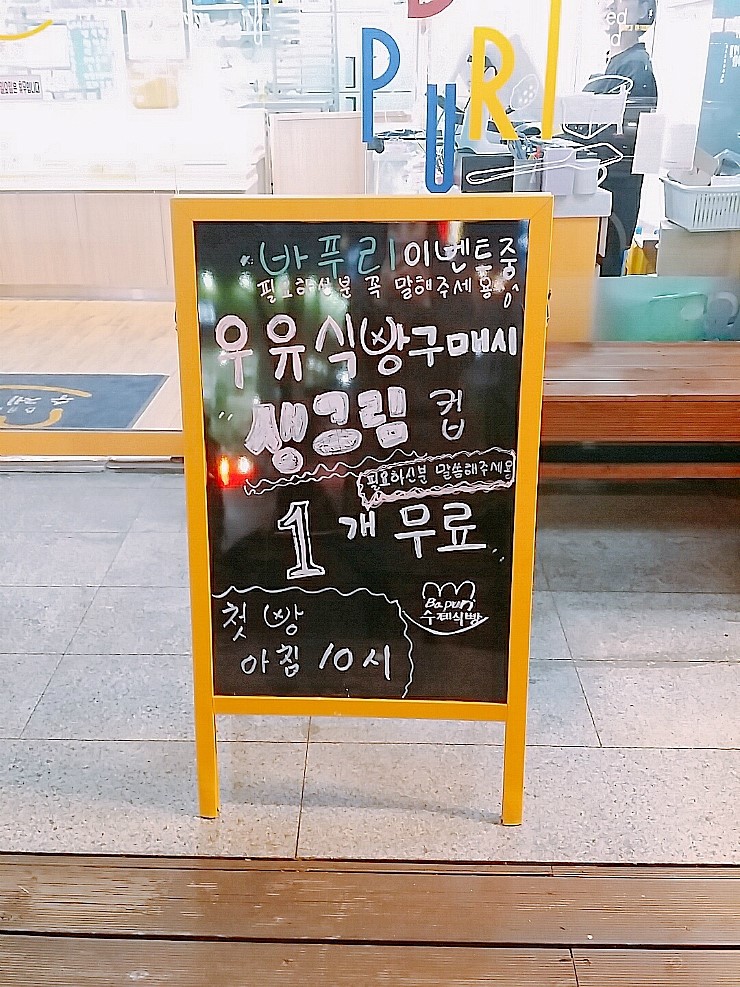 PURI
바푸리 이벤트중
필요하신분 꼭 말해주세용
우유식빵구매시
생크림 컵
필요하신분 말씀해주세용
1개 무료
Bapuri
수제식빵
첫 빵
아침 10시
수제